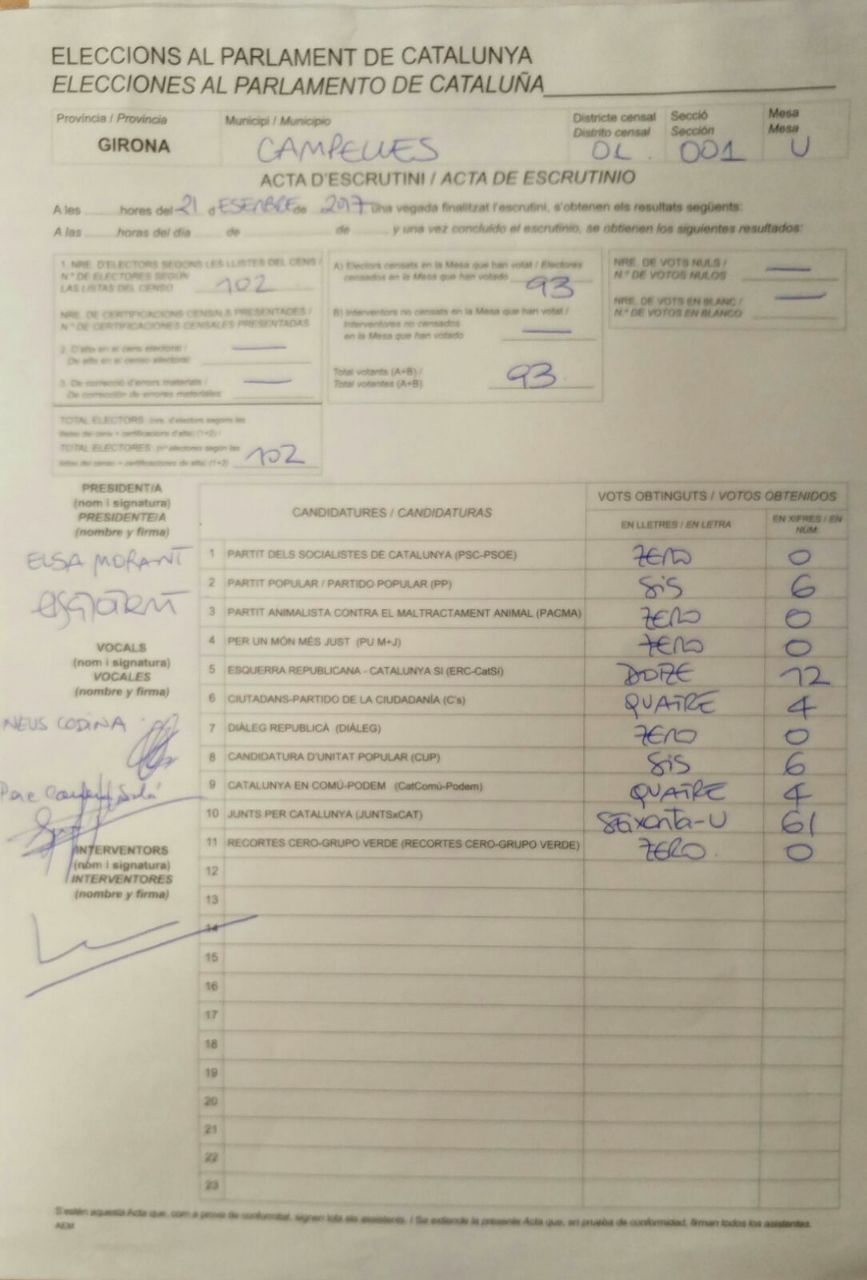 ELECCIONS AL PARLAMENT DE CATALUNYA
ELECCIONES AL PARLAMENTO DE CATALUÑA
Província / Provincia Municipi / Municipio Districte censal Secció Mesa
Distrito censal Sección Mesa
GIRONA CAMPELLES 01 001 U
ACTA D'ESCRUTINI / ACTA DE ESCRUTINIO
A les hores del 21 d ESEMBRE de 2017 una vegada finalitzat l'escrutini, s'obtenen els resultats següents:
A las horas del día de de y una vez concluido el escrutinio, se obtienen los siguientes resultados:
1. NRE. D'ELECTORS SEGONS LES LLISTES DEL CENS /
N.º DE ELECTORES SEGÚN
LAS LISTAS DEL CENSO 102
NRE. DE CERTIFICACIONS CENSALS PRESENTADES /
N.º DE CERTIFICACIONES CENSALES PRESENTADAS
2. D'alta en el cens electoral /
De alta en el censo electoral —
3. De correcció d'errors materials /
De corrección de errores materiales —
A) Electors censats en la Mesa que han votat / Electores
censados en la Mesa que han votado 93
B) Interventors no censats en la Mesa que han votat /
Interventores no censados
en la Mesa que han votado —
Total votants (A+B) /
Total votantes (A+B) 93
NRE. DE VOTS NULS /
N.º DE VOTOS NULOS —
NRE. DE VOTS EN BLANC /
N.º DE VOTOS EN BLANCO —
TOTAL ELECTORS (nre. d'electors segons les
llistes del cens + certificacions d'alta) (1+2) /
TOTAL ELECTORES (nº electores según las
listas del censo + certificaciones de alta) (1+2) 102
PRESIDENT/A
(nom i signatura)
PRESIDENTE/A
(nombre y firma)
ELSA MORANT
VOCALS
(nom i signatura)
VOCALES
(nombre y firma)
NEUS CODINA
Pere
INTERVENTORS
(nom i signatura)
INTERVENTORES
(nombre y firma)
CANDIDATURES / CANDIDATURAS VOTS OBTINGUTS / VOTOS OBTENIDOS
EN LLETRES / EN LETRA EN XIFRES / EN NÚM.
1 PARTIT DELS SOCIALISTES DE CATALUNYA (PSC-PSOE) ZERO 0
2 PARTIT POPULAR / PARTIDO POPULAR (PP) SIS 6
3 PARTIT ANIMALISTA CONTRA EL MALTRACTAMENT ANIMAL (PACMA) ZERO 0
4 PER UN MÓN MÉS JUST (PU M+J) ZERO 0
5 ESQUERRA REPUBLICANA - CATALUNYA SÍ (ERC-CatSí) DOTZE 12
6 CIUTADANS-PARTIDO DE LA CIUDADANÍA (C's) QUATRE 4
7 DIÀLEG REPUBLICÀ (DIÀLEG) ZERO 0
8 CANDIDATURA D'UNITAT POPULAR (CUP) SIS 6
9 CATALUNYA EN COMÚ-PODEM (CatComú-Podem) QUATRE 4
10 JUNTS PER CATALUNYA (JUNTSxCAT) SEIXANTA-U 61
11 RECORTES CERO-GRUPO VERDE (RECORTES CERO-GRUPO VERDE) ZERO. 0
12
13
14
15
16
17
18
19
20
21
22
23
S'estén aquesta Acta que, com a prova de conformitat, signen tots els assistents. / Se extiende la presente Acta que, en prueba de conformidad, firman todos los asistentes.
AEM